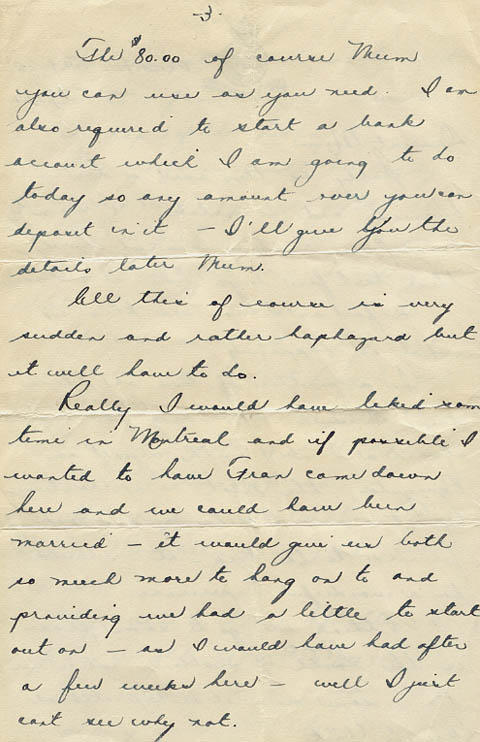 -3-
The $80.00 of course Mum
you can use as you need. I am
also required to start a bank
account which I am going to do
today so any amount over you can
deposit in it – I'll give you the
details later Mum.
All this of course is very
sudden and rather haphazard but
it will have to do.
Really I would have liked some
time in Montreal and if possible I
wanted to have Fran come down
here and we could have been
married – it would give us both
so much more to hang on to and
providing we had a little to start
out on – as I would have had after
a few weeks here – well I just
cant see why not.